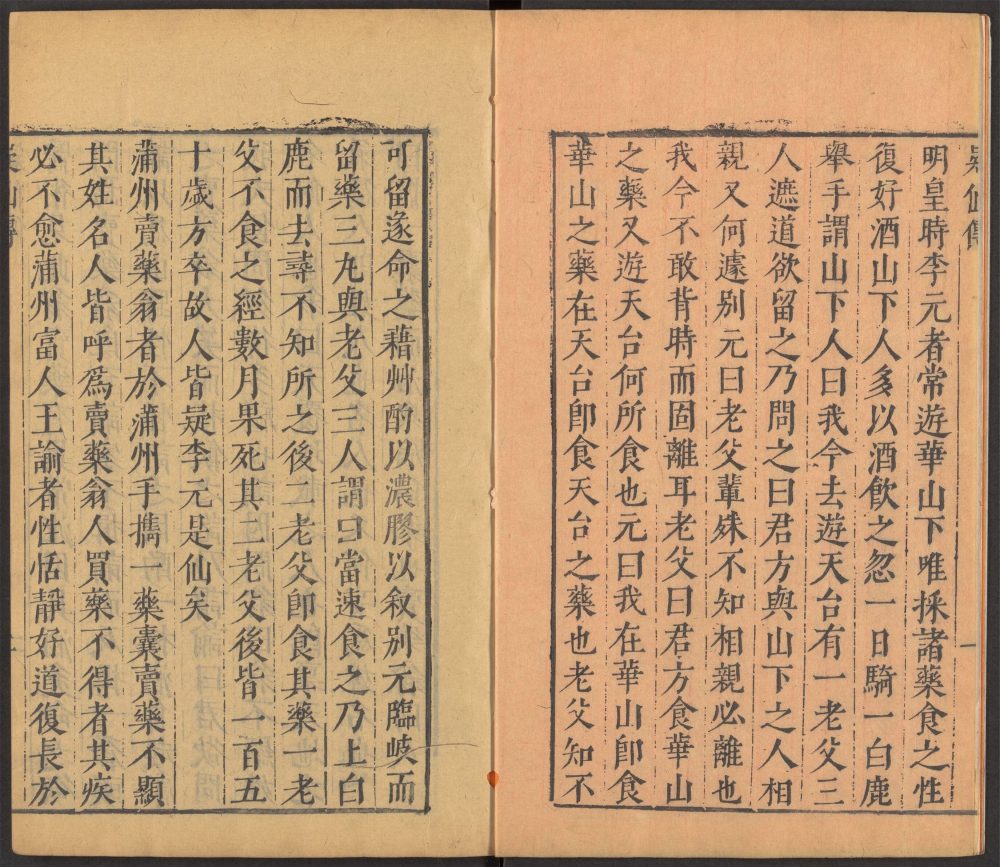 明皇時李元者常遊華山下唯採諸藥食之性
復好酒山下人多以酒飲之忽一日騎一白鹿
舉手謂山下人曰我今去遊天台有一老父三
人遮道欲留之乃問之曰君方與山下之人相
親又何遽别元曰老父輩殊不知相親必離也
我今不敢背時而固離耳老父曰君方食華山
之藥又遊天台何所食也元曰我在華山卽食
華山之藥在天台卽食天台之藥也老父知不
可留遂命之藉艸酌以濃膠以叙别元臨岐而
留藥三九與老父三人謂曰當速食之乃上白
鹿而去尋不知所之後二老父卽食其藥一老
父不食之經數月果死其二老父後皆一百五
十歲方卒故人皆疑李元是仙矣
蒲州賣藥翁者於蒲州手攜一藥囊賣藥不顯
其姓名人皆呼爲賣藥翁人買藥不得者其疾
必不愈蒲州富人王諭者性恬靜好道復長於